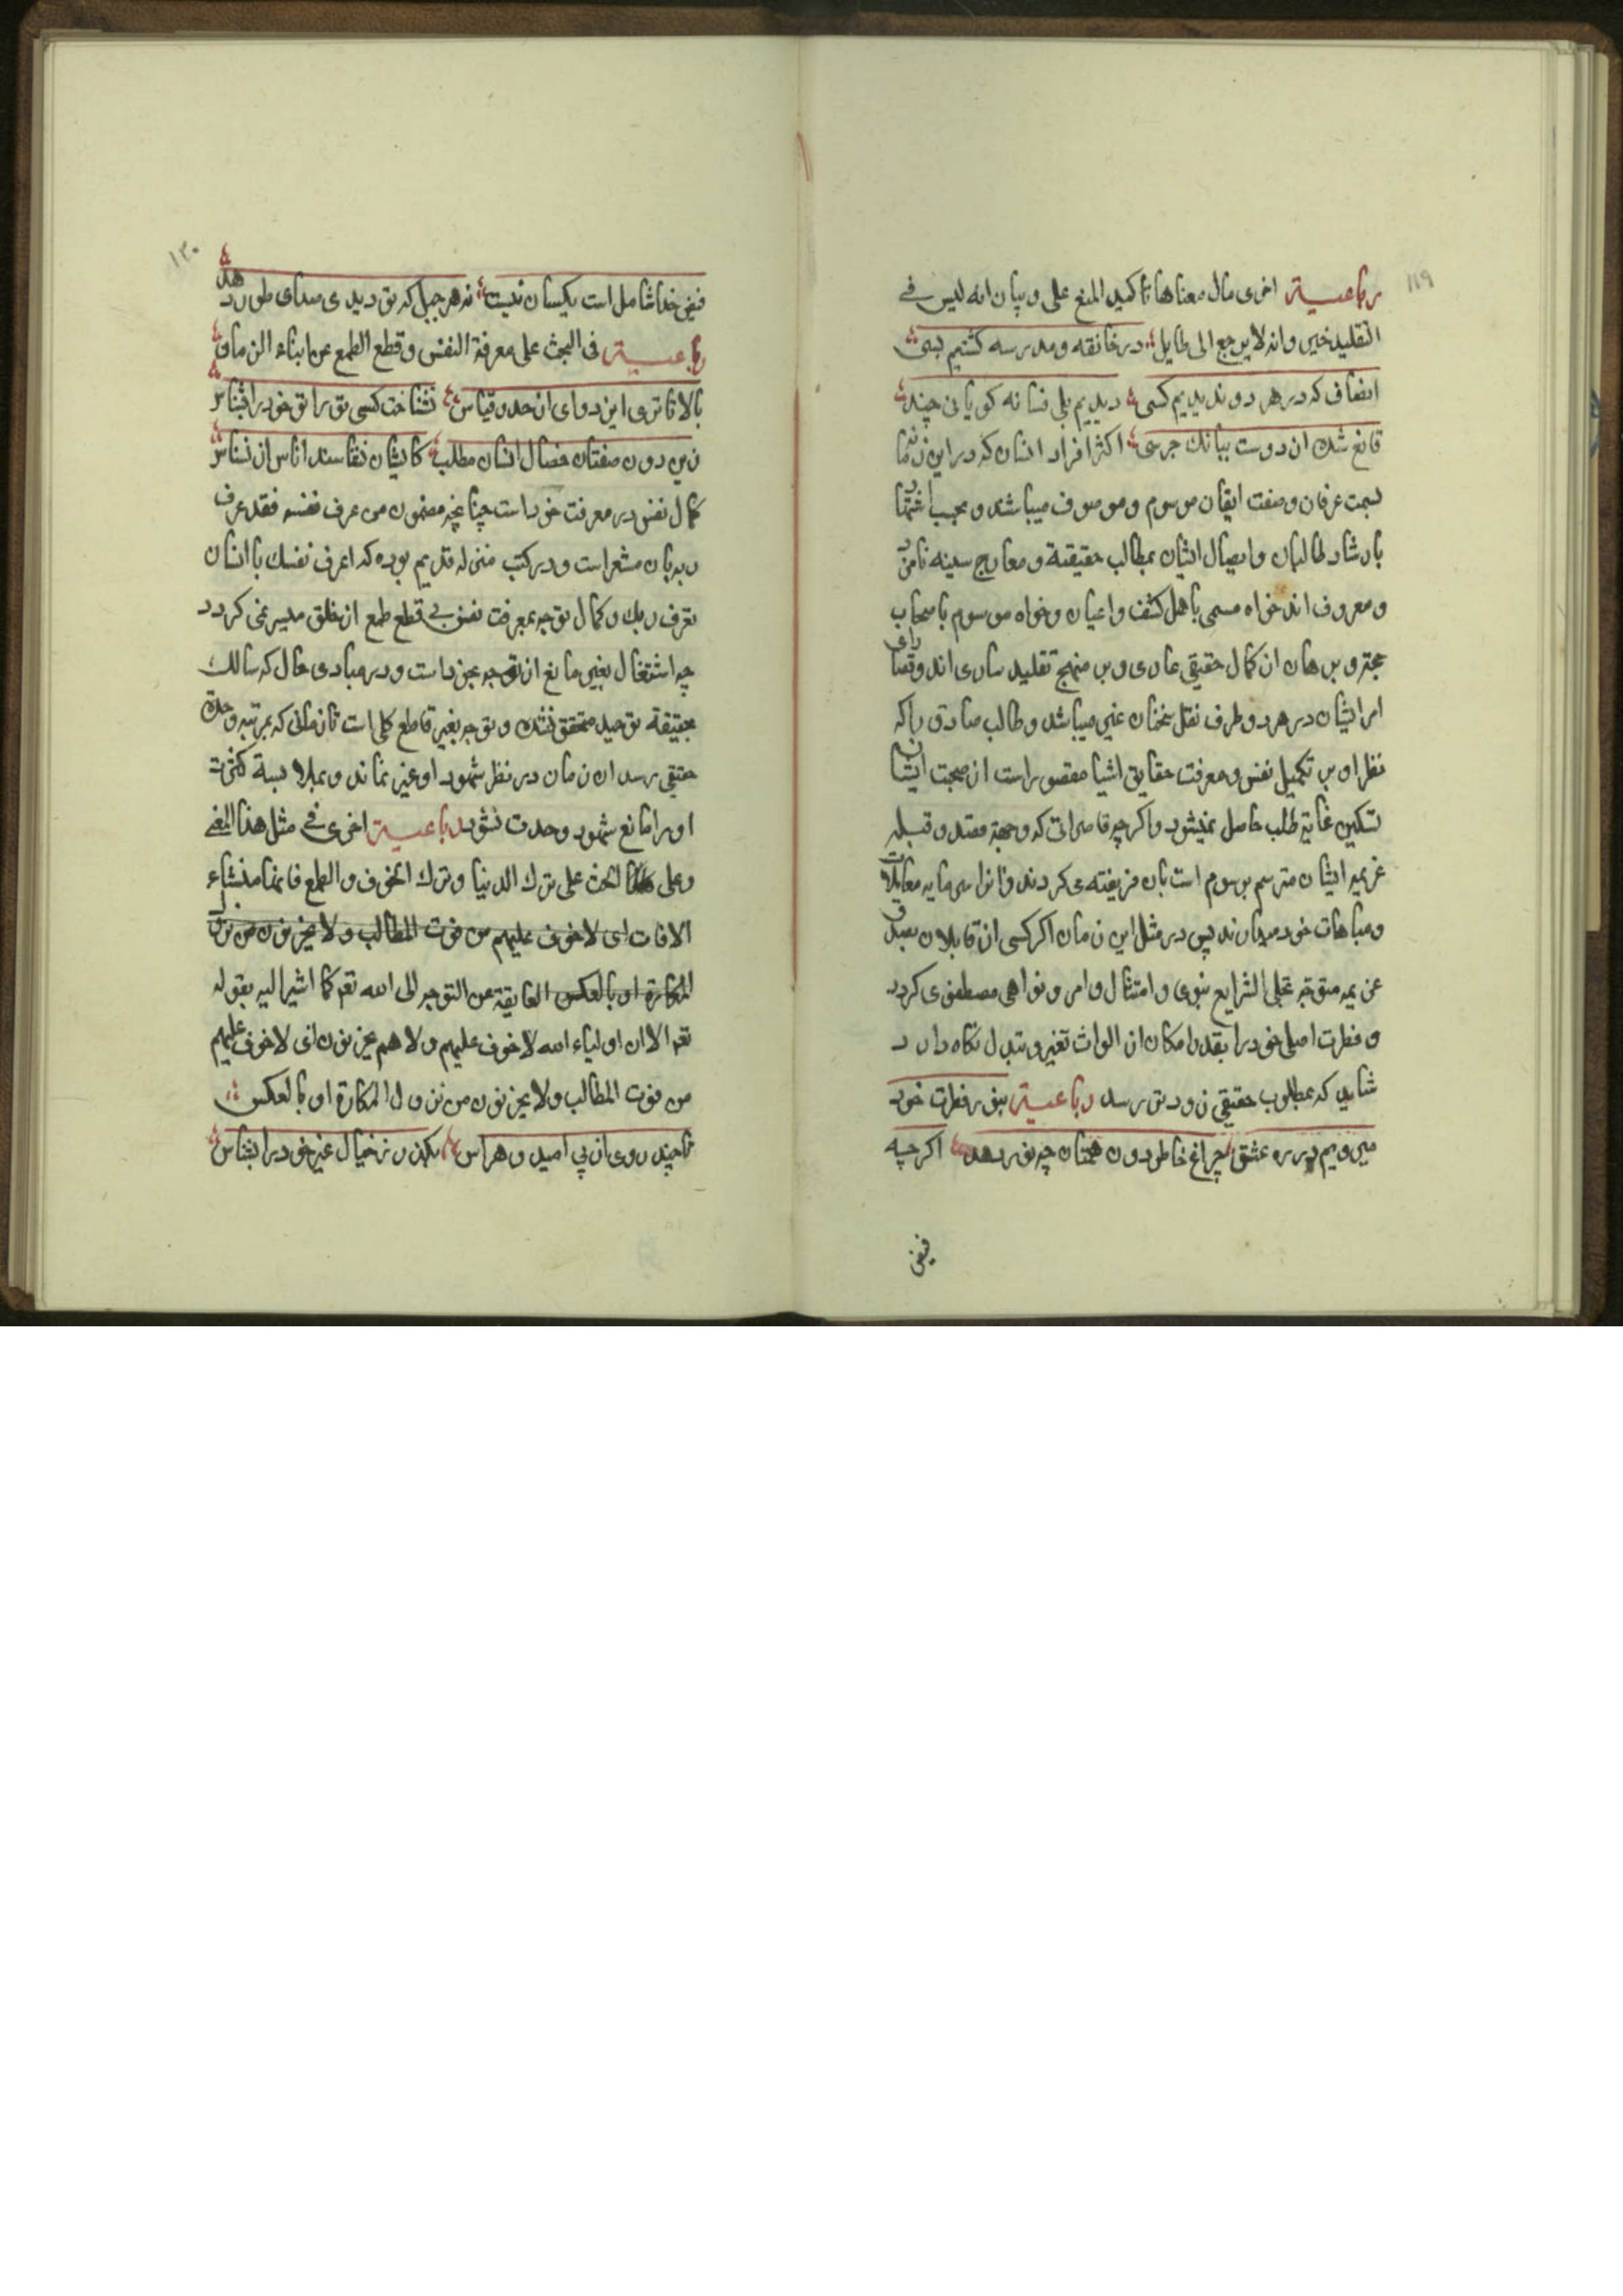 ١١٩
رباعیة اخری مال معناها تاکید المنع علی و بیان انه لیس فی
التقلید خیر وانه لا یرجع الی طایل در خانقه و مدرسه گشتیم بسی
انصاف که در هر دو ندیدیم کسی دیدیم بلی نسانه کویانی چند
قانع شده از دوست ببانک جرسی اکثر افراد انسان که در این زمان
بسمت عرفان وصفت ایقان موسوم و موصوف میباشند و بحسب اشتهار
بارشاد طالبان و ایصال ایشان بمطالب حقیقة و معارج سینه نامزد
و معروف اند خواه مسمی باهل کشف و اعیان و خواه موسوم باصحاب
حجة و برهان از کمال حقیقی عاری و بر منهج تقلید ساری اند و قصارای
امر ایشان در هر دو طرف نقل سخنان غیر میباشد و طالب صادق را که
نظر او بر تکمیل نفس و معرفت حقایق اشیا مقصور است از صحبت ایشان
تسکین غایة طلب حاصل نمیشود و اکرچه قاصرانی که وجهة مقصد و قبله
عزیمة ایشان مترسم برسوم است بان فریفته می کردند و انرا سرمایه مقابلات
و مباهات خود میدانند پس در مثل این زمان اکر کسی از قابلان بصدق
عزیمه متوجه تحلی الشرایع نبوی و امتثال اوامر و نواهی مصطفوی کردد
و فطرت اصلی خود را بقدر امکان از الواث تغیر و تبدل نکاه دارد
شاید که بمطلوب حقیقی زودتر رسد رباعیة بنور فطرت خود
میرویم در ره عشق چراغ خاطر دون همتان چه نور دهد اکرچه
فیض
١٢٠
فیض خدا شامل است یکسان نیست نه هر جبل که تو دیدی صدای طور دهد
رباعیة فی البحث علی معرفة النفس و قطع الطمع عن ابناء الزمان
بالاتری این دوای از حد و قیاس نشناخت کسی تو را تو خود را بشناس
زین دون صفتان خصال انسان مطلب کایشان نشناسند اناس از نسناس
کمال نفس در معرفت خود است چنانچه مضمون من عرف نفسه فقد عرف
ربه بان مشعر است و در کتب منزله قدیم بوده که اعرف نفسک یا انسان
تعرف ربک و کمال توجه بمعرفت نفس بی قطع طمع از خلق میسر نمی کردد
چه اشتغال بغیر مانع از توجه بخود است و در مبادی حال که سالک
بحقیقة توحید متحقق نشده و توجه بغیر قاطع کلی است تا زمانی که بمرتبه وحدة
حقیقی رسد ان زمان در نظر شهود او غیر نماند و بملابسة کثرت
او را مانع شهود وحدت نشود رباعیة اخری فی مثل هذا المعنی
و علی الحث علی ترک الدنیا و ترک الخوف و الطمع فانهما منشاء
الافات ای لا خوف علیهم من فوت المطالب و لا یحزنون من نزول
المکارة او بالعکس العایقة عن التوجه الی الله تعم کما اشیر الیه بقوله
تعم الا ان اولیاء الله لا خوف علیهم و لا هم یحزنون ای لا خوف علیهم
من فوت المطالب و لا یحزنون من نزول المکارة او بالعکس
تا چند روی از پی امید و هراس بکذر ز خیال غیر خود را بشناس